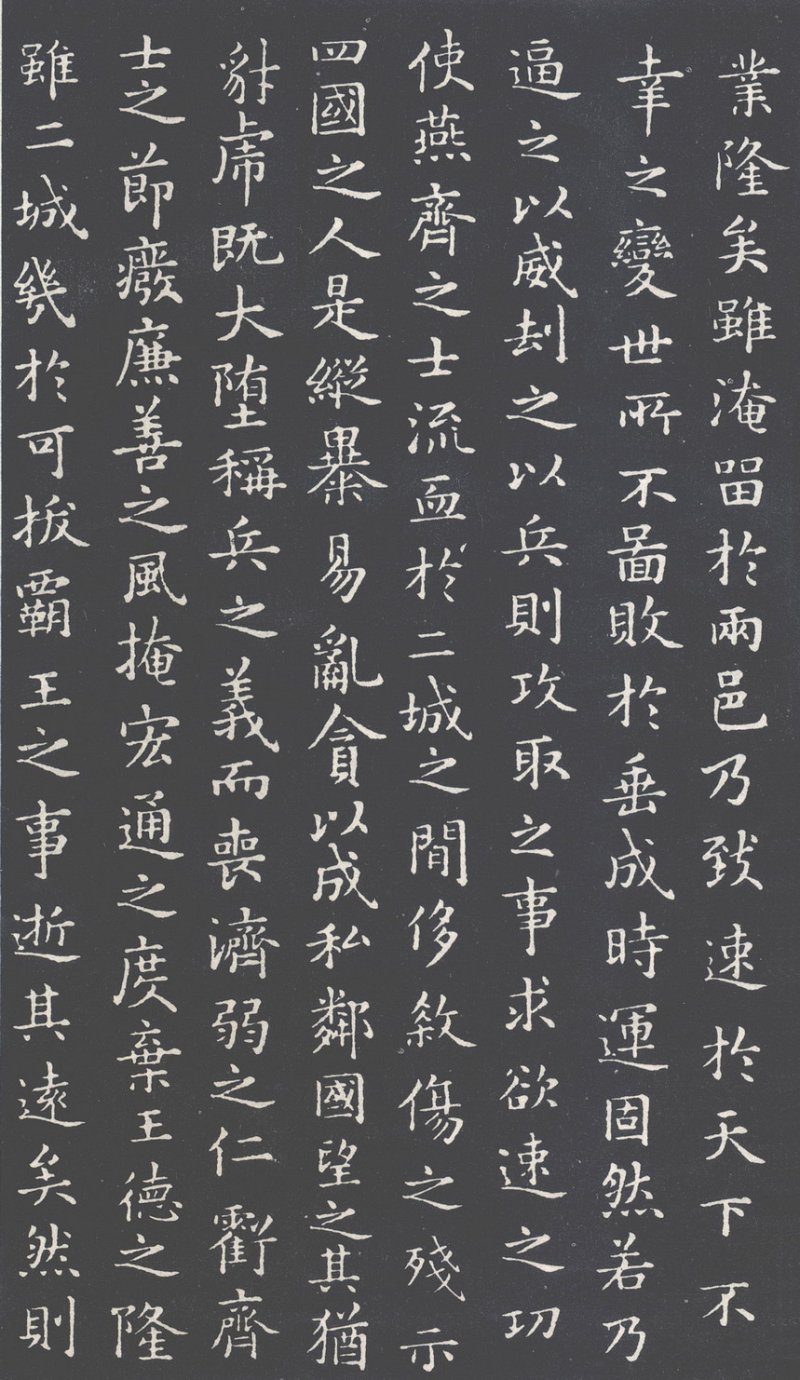 業隆矣雖淹留於兩邑乃致速於天下不
幸之變世所不圖敗於垂成時運固然若乃
逼之以威劫之以兵則攻取之事求欲速之功
使燕齊之士流血於二城之間侈殺傷之殘示
四國之人是縱暴易亂貪以成私鄰國望之其猶
豺虎既大墮稱兵之義而喪濟弱之仁虧齊
士之節廢廉善之風掩宏通之度棄王德之隆
雖二城幾於可拔霸王之事逝其遠矣然則